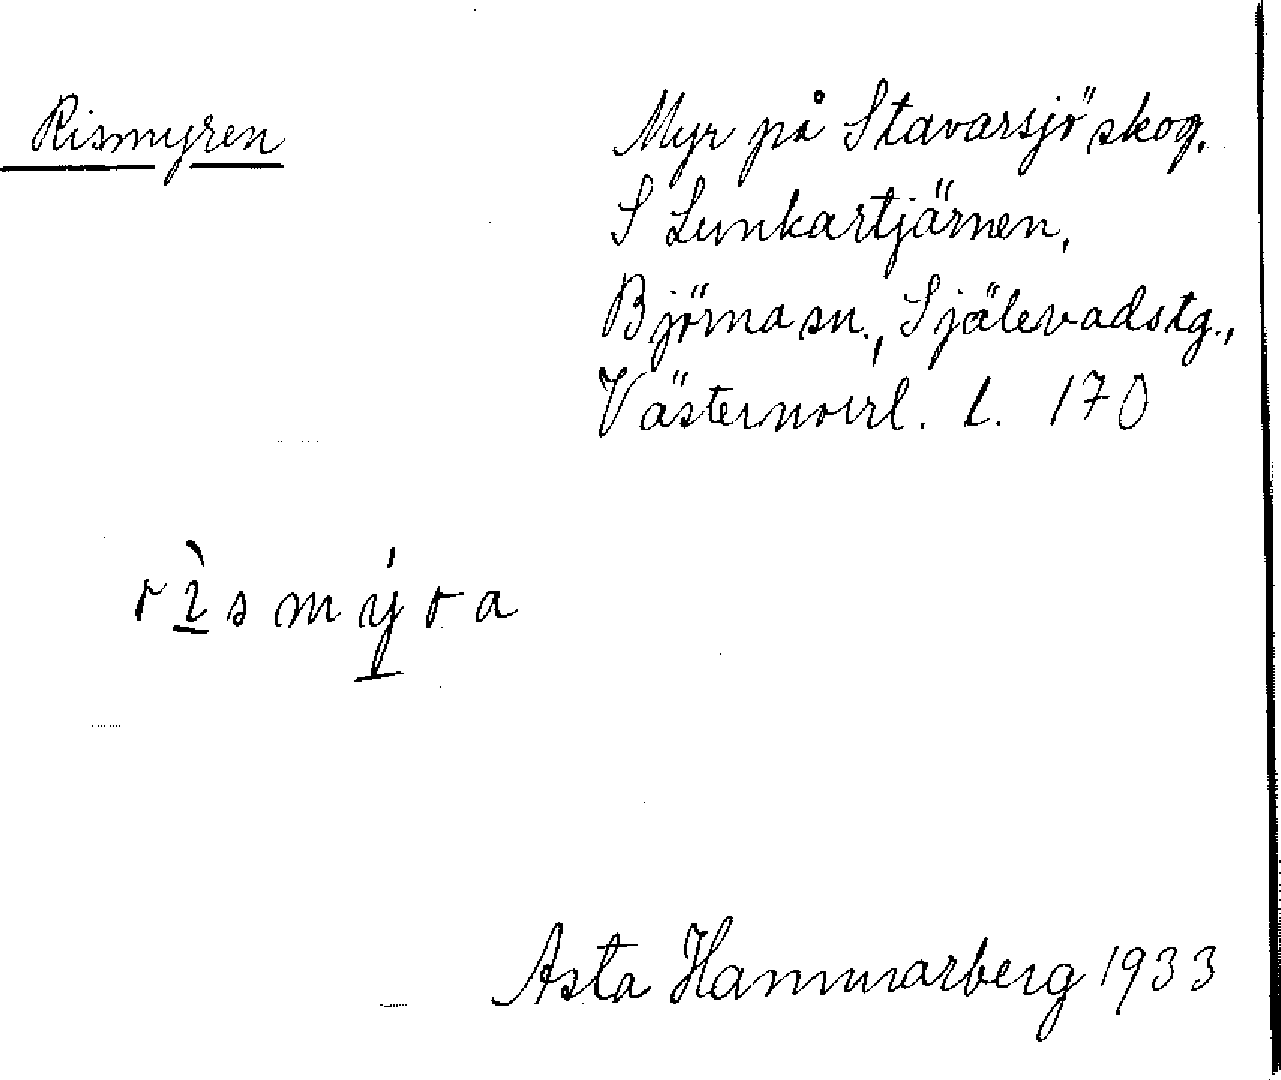 Rismyren
Myr på Stavarsjö skog.
S Lunkartjärnen,
Björna sn., Själevadstg.,
Västernorrl. l. 170
rı̀smýra
Asta Hammarberg 1933